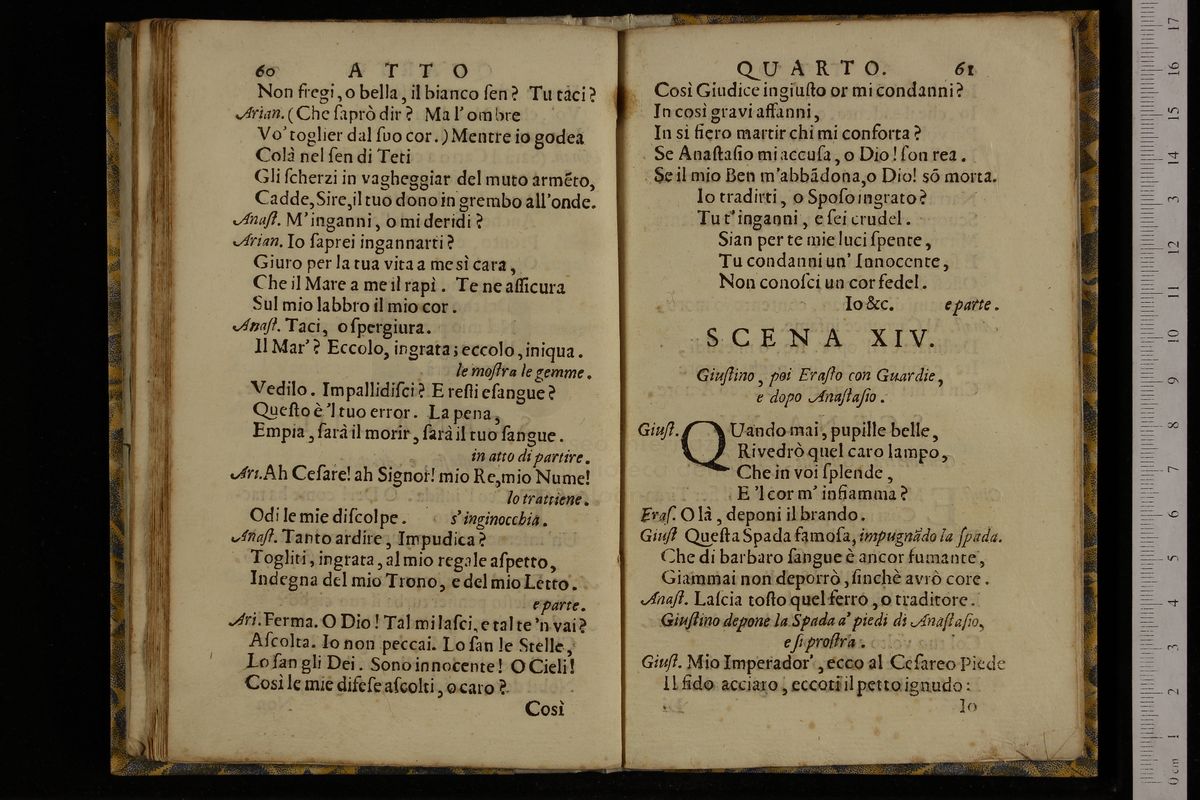 60 ATTO
Non fregi, o bella, il bianco ſen? Tu taci?
Arian. (Che ſaprò dir? Ma l' ombre
Vo' toglier dal ſuo cor.) Mentre io godea
Colà nel ſen di Teti
Gli ſcherzi in vagheggiar del muto armẽto,
Cadde, Sire, il tuo dono in grembo all'onde.
Anaſt. M'inganni, o mi deridi?
Arian. Io ſaprei ingannarti?
Giuro per la tua vita a me sì cara,
Che il Mare a me il rapì. Te ne aſſicura
Sul mio labbro il mio cor.
Anaſt. Taci, o ſpergiura.
Il Mar'? Eccolo, ingrata; eccolo, iniqua.
le moſtra le gemme.
Vedilo. Impallidiſci? E reſti eſangue?
Queſto è 'l tuo error. La pena,
Empia, ſarà il morir, ſarà il tuo ſangue.
in atto di partire.
Ari. Ah Ceſare! ah Signor! mio Re, mio Nume!
lo trattiene.
Odi le mie diſcolpe. s'inginocchia.
Anaſt. Tanto ardire, Impudica?
Togliti, ingrata, al mio regale aſpetto,
Indegna del mio Trono, e del mio Letto.
e parte.
Ari. Ferma. O Dio! Tal mi laſci, e tal te 'n vai?
Aſcolta. Io non peccai. Lo ſan le Stelle,
Lo ſan gli Dei. Sono innocente! O Cieli!
Così le mie difeſe aſcolti, o caro?
Così
QUARTO. 61
Così Giudice ingiuſto or mi condanni?
In così gravi affanni,
In si fiero martir chi mi conforta?
Se Anaſtaſio mi accuſa, o Dio! ſon rea.
Se il mio Ben m'abbãdona, o Dio! sõ morta.
Io tradirti, o Spoſo ingrato?
Tu t'inganni, e ſei crudel.
Sian per te mie luci ſpente,
Tu condanni un' Innocente,
Non conoſci un cor fedel.
Io &c. e parte.
SCENA XIV.
Giuſtino, poi Eraſto con Guardie,
e dopo Anaſtaſio.
Giuſt. QUando mai, pupille belle,
Rivedrò quel caro lampo,
Che in voi ſplende,
E 'l cor m' infiamma?
Eraſ. O là, deponi il brando.
Giuſt Queſta Spada famoſa, impugnãdo la ſpada.
Che di barbaro ſangue è ancor fumante,
Giammai non deporrò, finchè avrò core.
Anaſt. Laſcia toſto quel ferro, o traditore.
Giuſtino depone la Spada a' piedi di Anaſtaſio,
e ſi proſtra.
Giuſt. Mio Imperador', ecco al Ceſareo Piede
Il fido acciaro, eccoti il petto ignudo:
Io
0 cm 1 2 3 4 5 6 7 8 9 10 11 12 13 14 15 16 17